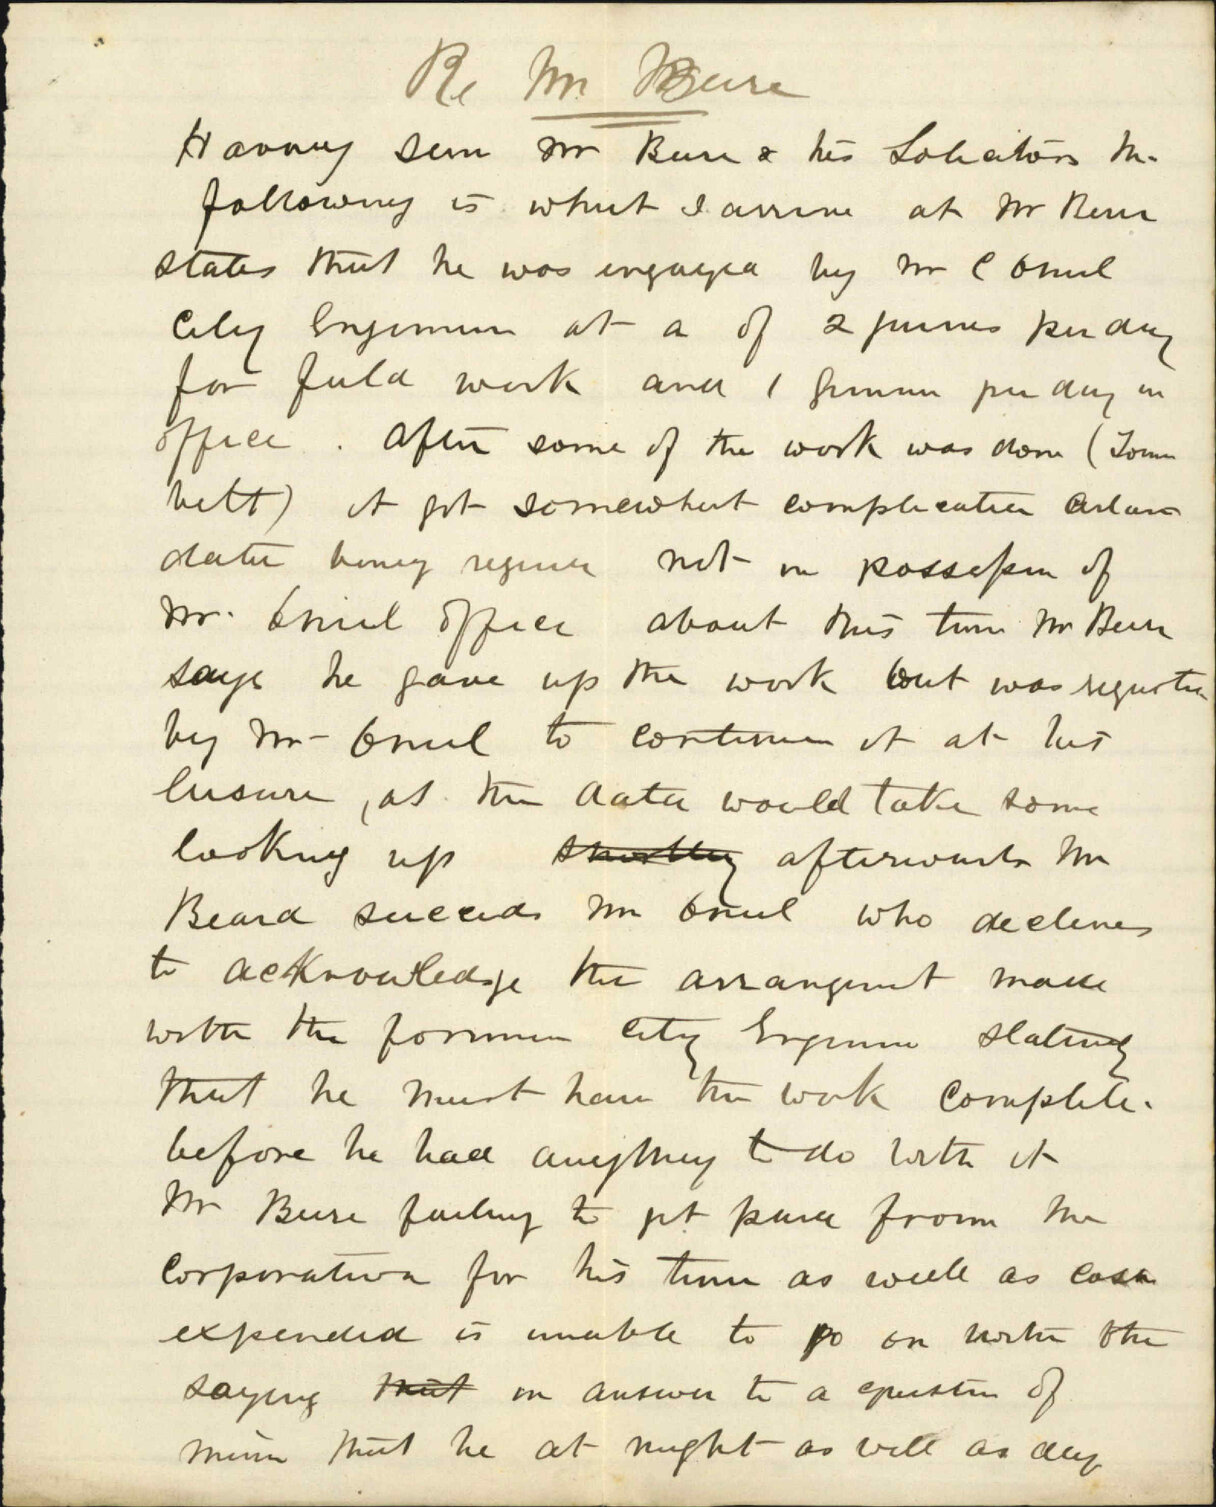 Re Mr Bure
Having seen Mr Bure & his Solicitors the
following is what I arrive at Mr Bure
states that he was engaged by Mr C Oniel
City Engineer at a of 2 guineas per day
for field work and 1 guinea per day in
office. After some of the work was done (Town
belt) it got somewhat complicated certain
data being required not in possession of
Mr. Oniel office about this time Mr Bure
says he gave up the work but was requested
by Mr Oniel to continue it at his
leisure, as the data would take some
looking up shortly afterwards Mr
Beard succeeds Mr Oniel who declines
to acknowledge the arrangement made
with the former City Engineer stating
that he must have the work complete.
before he had anything to do with it
Mr Bure failing to get paid from the
Corporation for his time as well as cash
expended is unable to go on with the
saying that in answer to a question of
mine that he at night as well as day